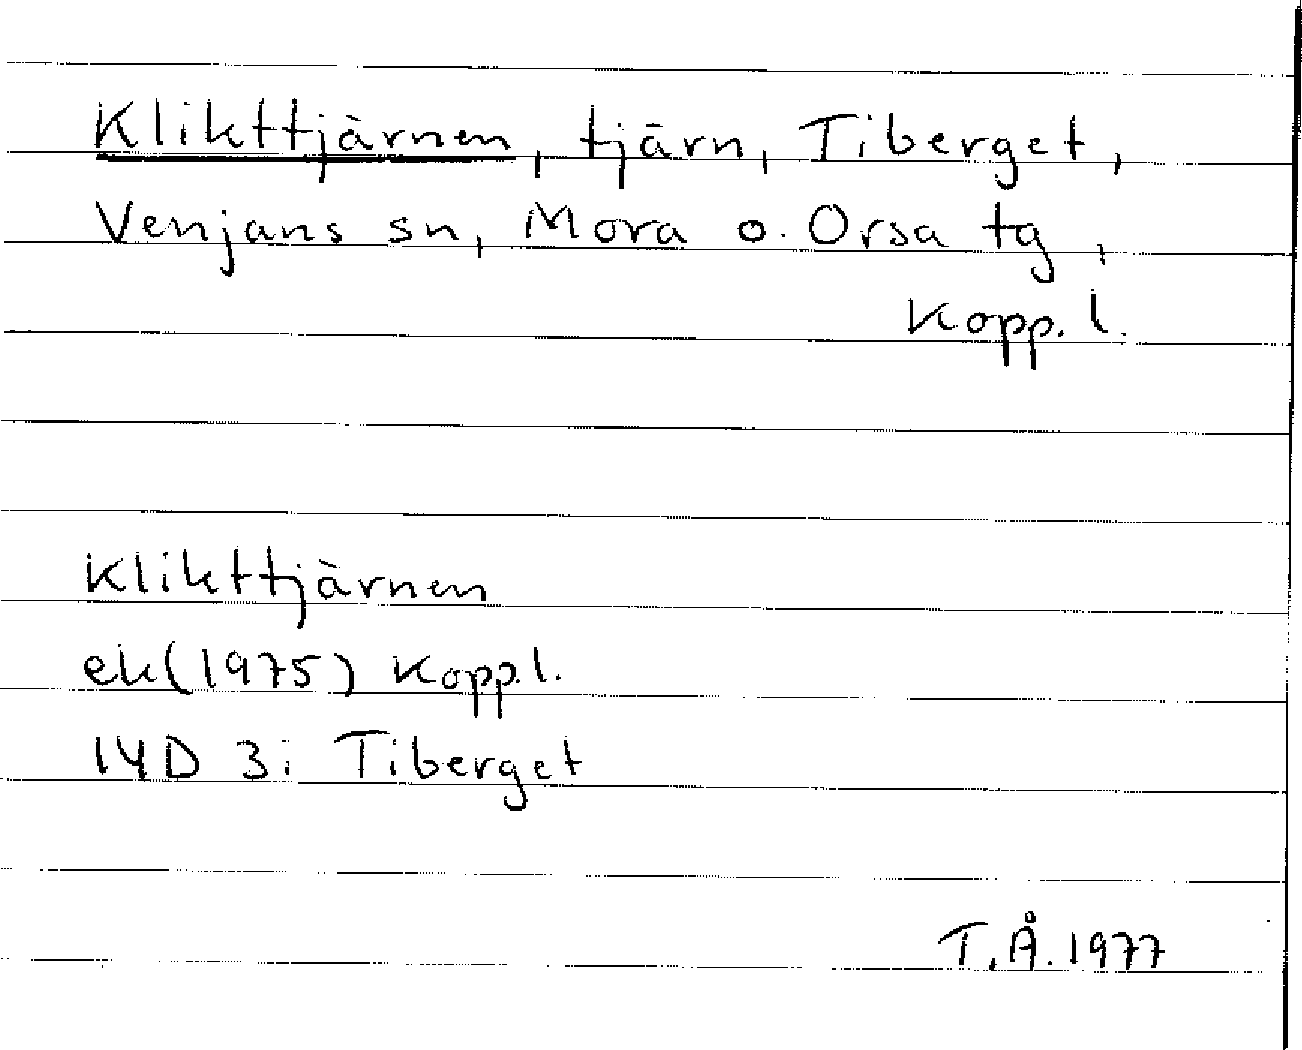 Klikttjärnen, tjärn, Tiberget,
Venjans sn, Mora o. Orsa tg,
Kopp. l.
Klikttjärnen
ek(1975) Kopp.l.
14D 3i Tiberget
T.Å. 1977